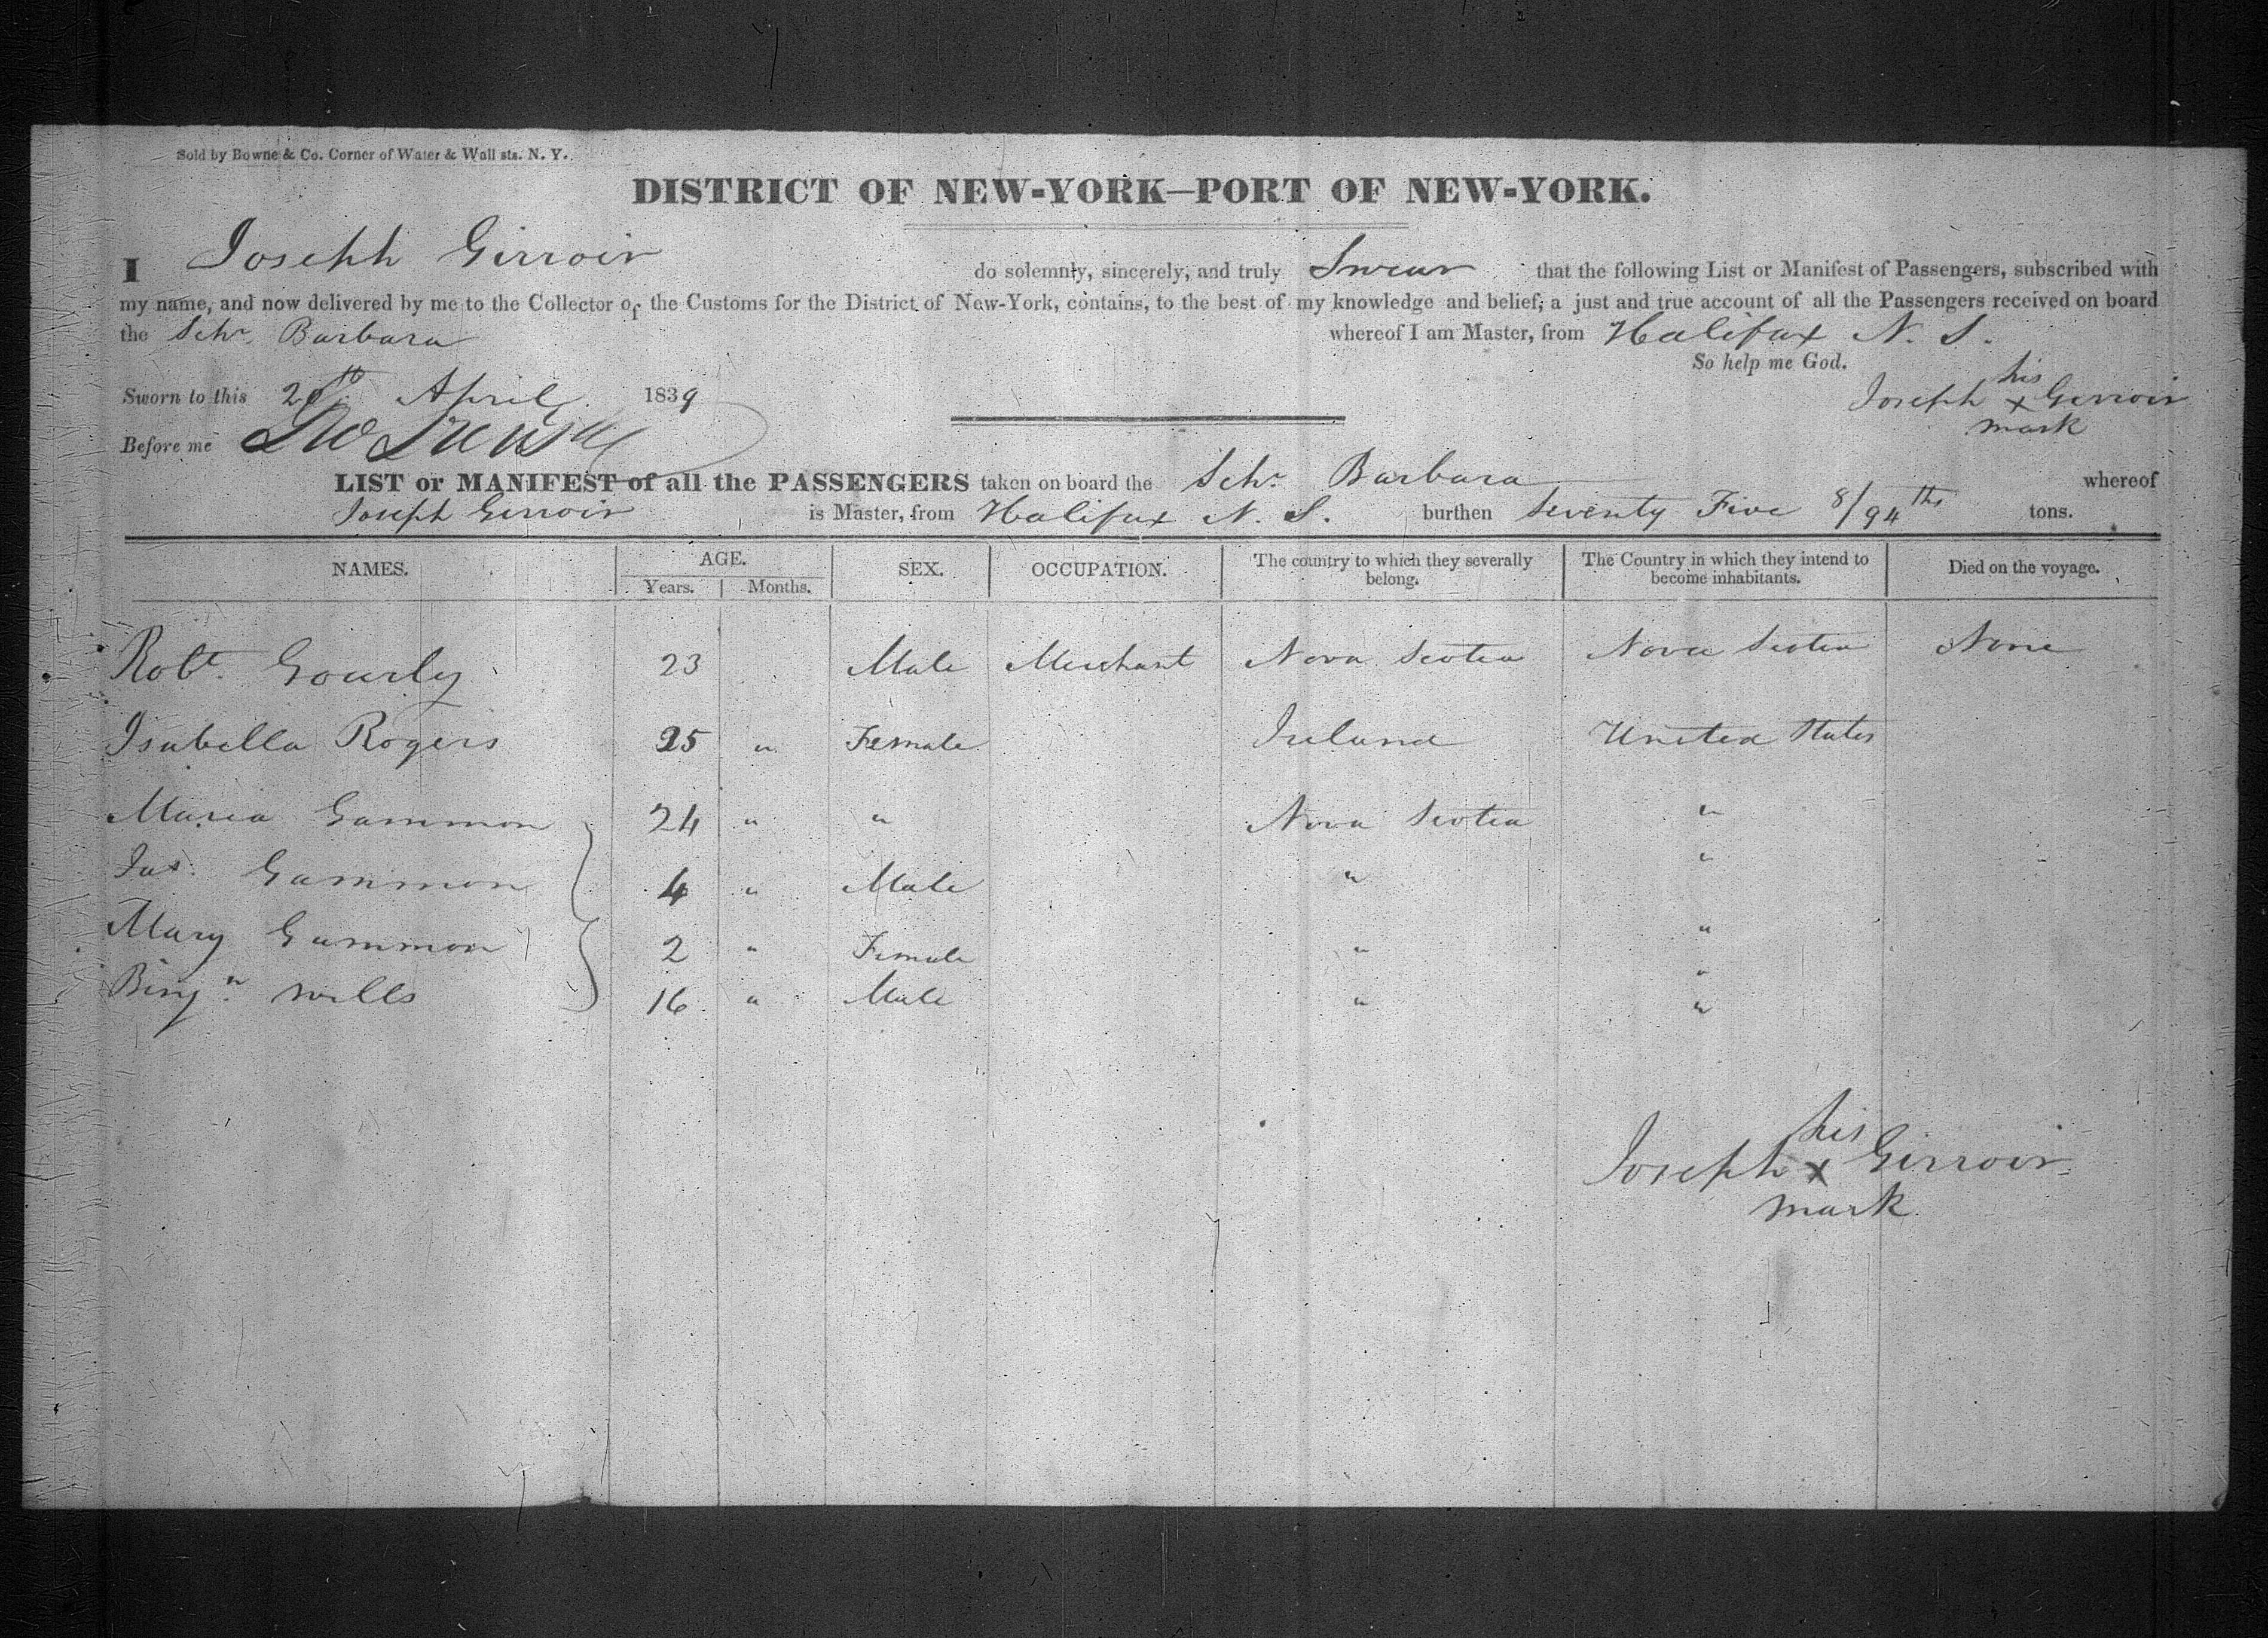 Sold by Bowne & Co. Corner of Water & Wall sts. N. Y.
DISTRICT OF NEW-YORK—PORT OF NEW-YORK.
I Joseph Girroir do solemnly, sincerely, and truly Swear that the following List or Manifest of Passengers, subscribed with
my name, and now delivered by me to the Collector of the Customs for the District of New-York, contains, to the best of my knowledge and belief, a just and true account of all the Passengers received on board
the Schr. Barbara whereof I am Master, from Halifax N. S.
So help me God.
Sworn to this April 1839
his
Joseph x Girroir
mark
Before me
LIST or MANIFEST of all the PASSENGERS taken on board the Schr. Barbara whereof
Joseph Girroir is Master, from Halifax N. S. burthen Seventy Five 8/94ths tons.
NAMES. AGE. SEX. OCCUPATION. The country to which they severally belong. The Country in which they intend to become inhabitants. Died on the voyage.
Years. Months.
Robt. Gourly 23 Male Merchant Nova Scotia Nova Scotia None
Isabella Rogers 25 " Female Ireland United States
Maria Gammon 24 " " Nova Scotia "
Jas. Gammon 4 " Male " "
Mary Gammon 2 " Female " "
Binjn. Wills 16 " Male " " "
his
Joseph x Girroir
mark